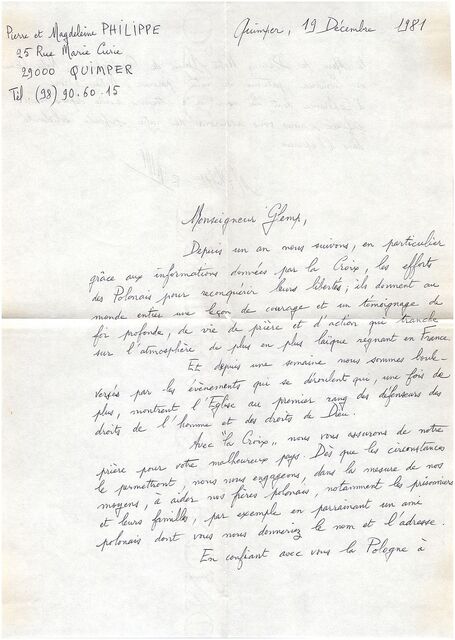 Pierre et Magdeleine PHILIPPE
25 Rue Marie Curie
29000 QUIMPER
Tél. (98) 90.60.15
Quimper, 19 Décembre 1981
Monseigneur Glemp,
Depuis un an nous suivons, en particulier
grâce aux informations données par la Croix, les efforts
des Polonais pour reconquérir leurs libertés ; ils donnent au
monde entier une leçon de courage et un témoignage de
foi profonde, de vie de prière et d'action qui tranche
sur l'atmosphère de plus en plus laïque régnant en France.
Et depuis une semaine nous sommes boule-
versés par les évènements qui se déroulent qui, une fois de
plus, montrent l'Eglise au premier rang des défenseurs des
droits de l'homme et des droits de Dieu.
Avec "la Croix", nous vous assurons de notre
prière pour votre malheureux pays. Dès que les circonstances
le permettront, nous nous engageons, dans la mesure de nos
moyens, à aider nos frères polonais, notamment les prisonniers
et leurs familles, par exemple en parrainant un ami
polonais dont vous nous donneriez le nom et l'adresse.
En confiant avec vous la Pologne à